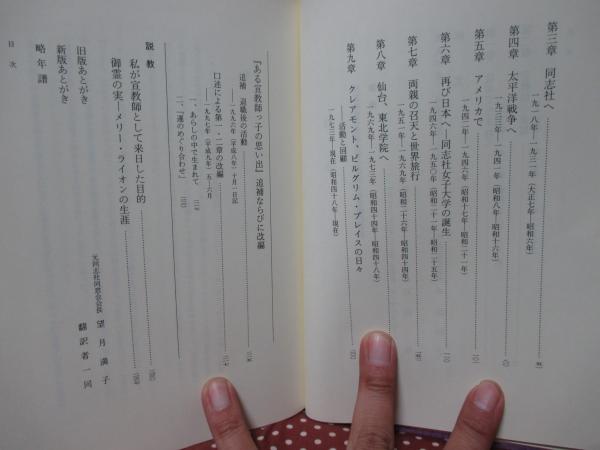 第三章　同志社へ
一九一八年―一九三一年（大正七年―昭和六年）
第四章　太平洋戦争へ
一九三三年―一九四一年（昭和八年―昭和十六年）
第五章　アメリカで
一九四二年―一九四六年（昭和十七年―昭和二十一年）
第六章　再び日本へ―同志社女子大学の誕生
一九四六年―一九五〇年（昭和二十一年―昭和二十五年）
第七章　両親の召天と世界旅行
一九五一年―一九六九年（昭和二十六年―昭和四十四年）
第八章　仙台、東北学院へ
一九六九年―一九七三年（昭和四十四年―昭和四十八年）
第九章　クレアモント、ピルグリム・プレイスの日々
―活動と回顧
一九七三年―現在（昭和四十八年―現在）
『ある宣教師っ子の思い出』追補ならびに改編
追補　退職後の活動
―一九九六年（平成八年）十月一日記
口述による第一・二章の改編
―一九九七年（平成九年）五―六月
一、あらしの中で生まれて
二、『運のめぐり合わせ』
説教
私が宣教師として来日した目的
御霊の実―メリー・ライオンの生涯
旧版あとがき　元同志社同窓会会長　望月満子
新版あとがき　翻訳者一同
略年譜
目次